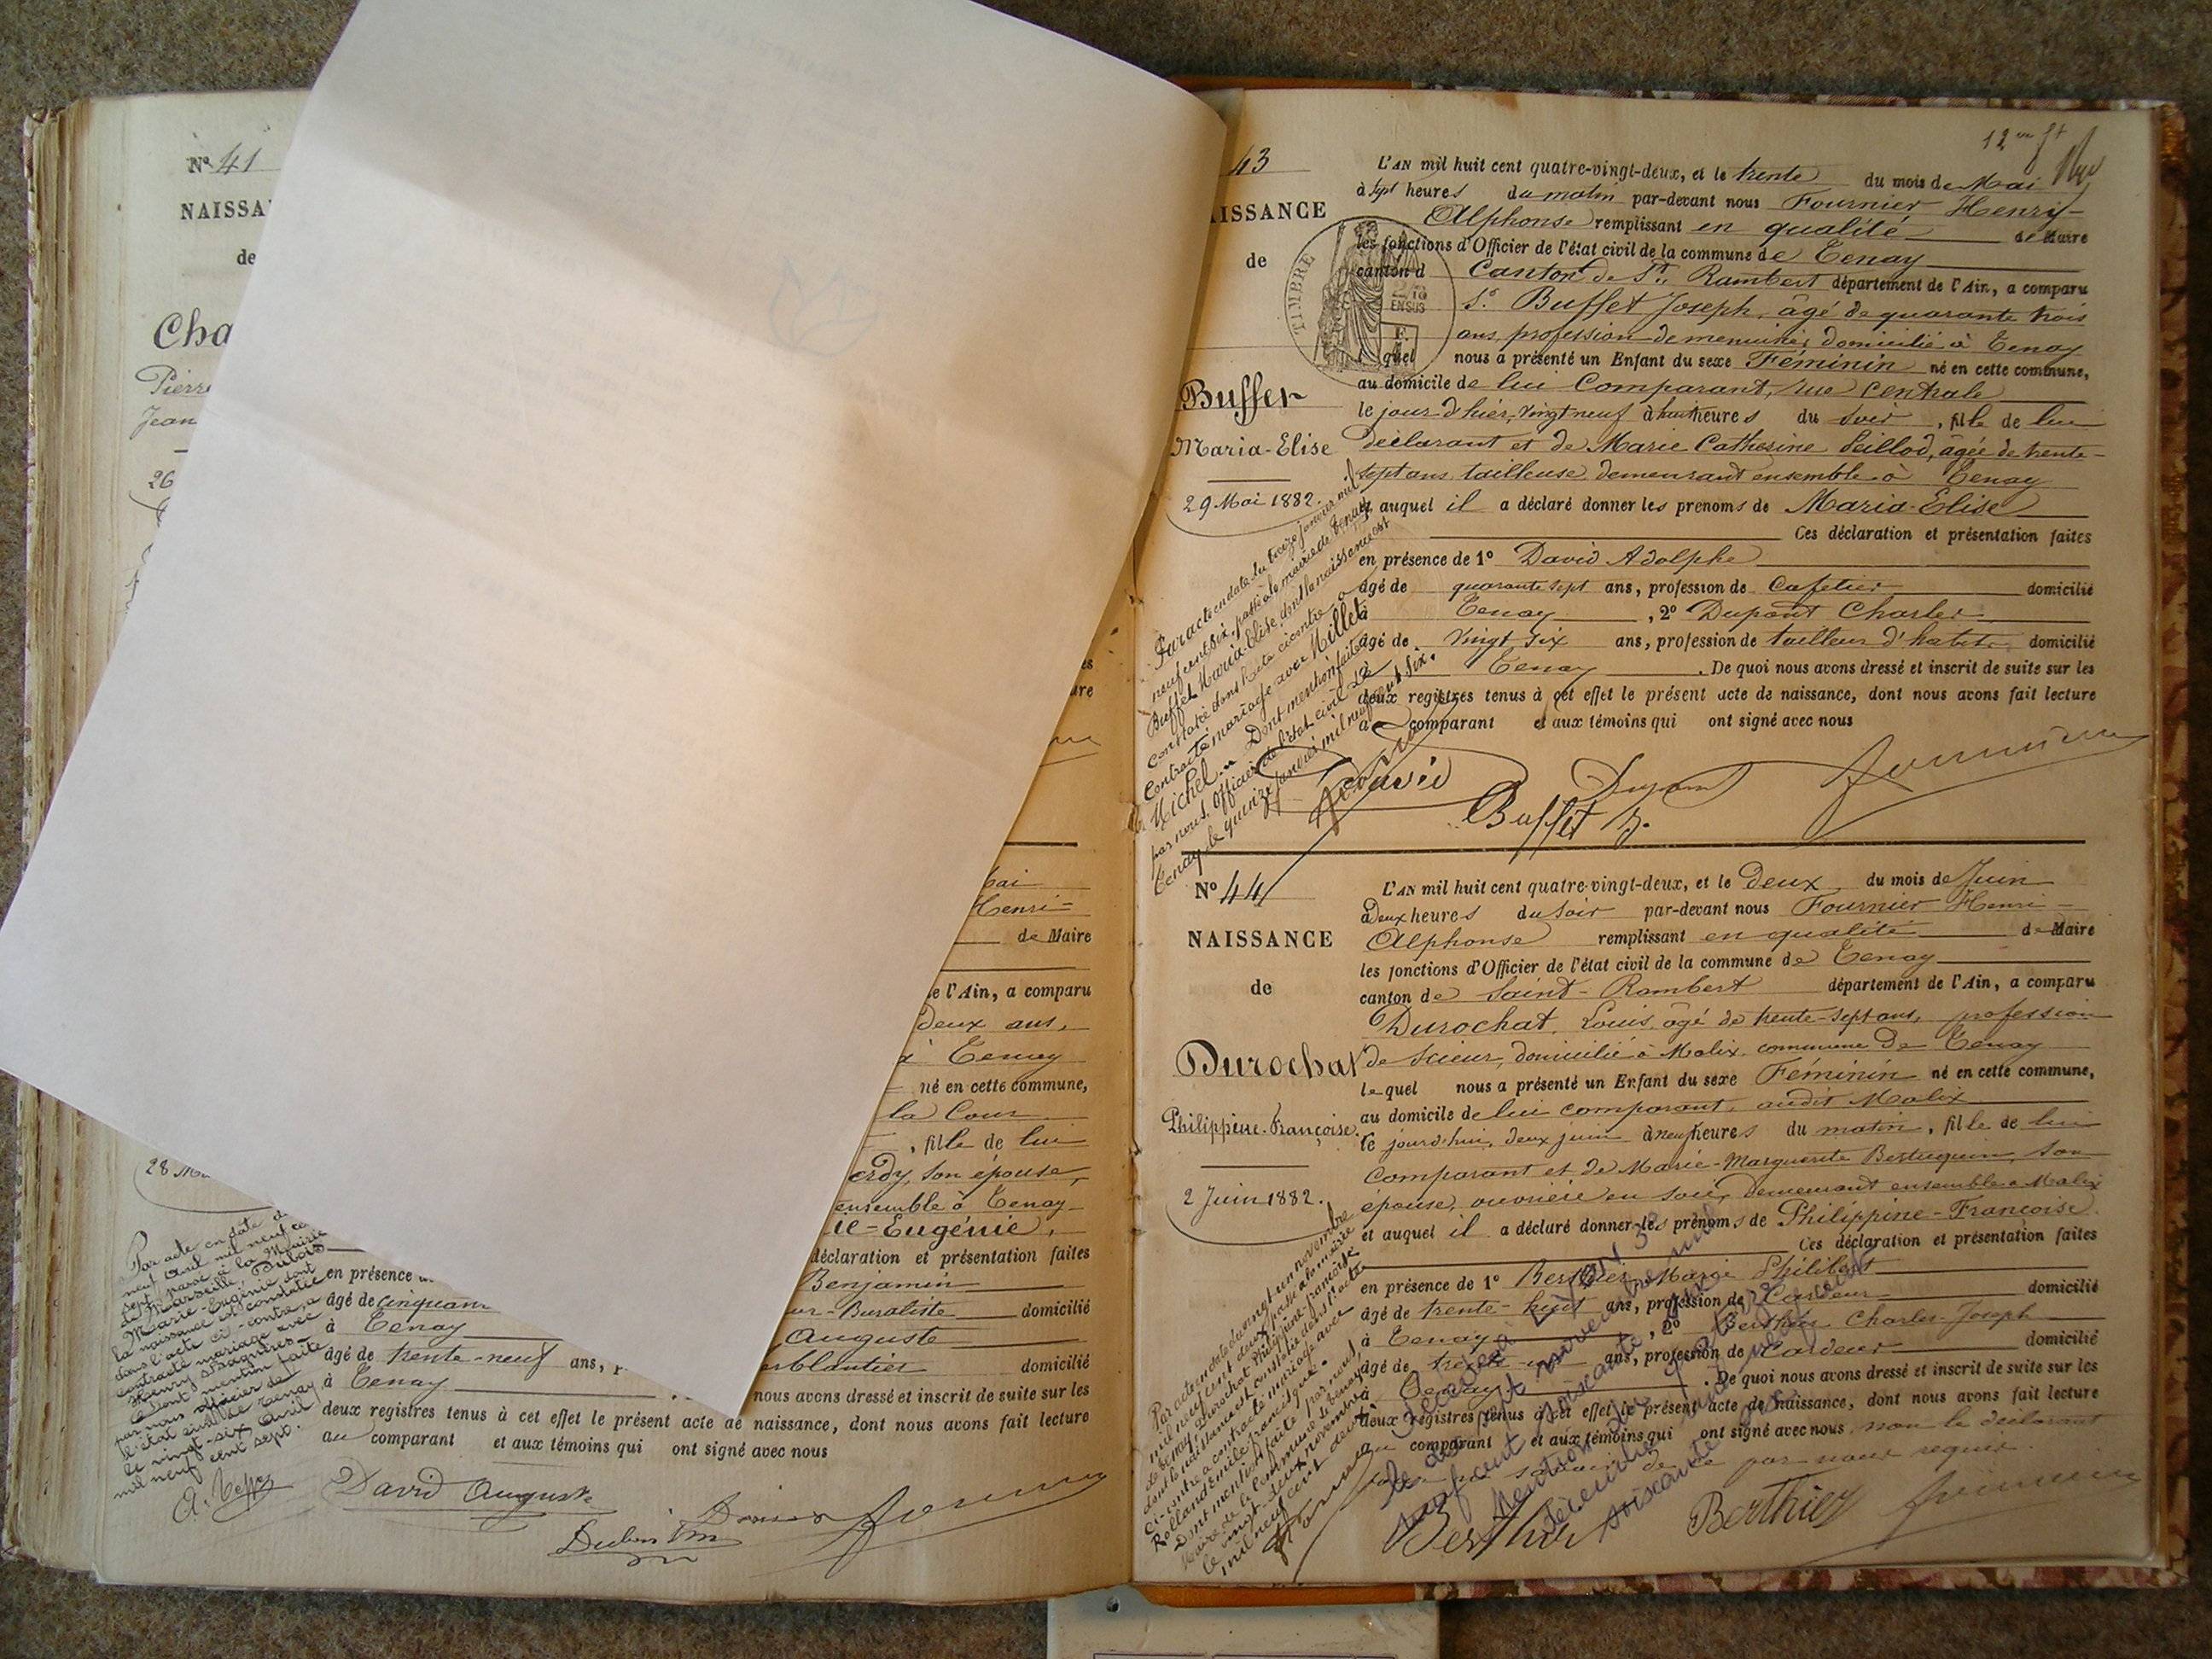 Nº 41
NAISSA
de
Cha
Pierre
Jean
26
es
ire
Mai
Henri=
de Maire
e l'Ain, a comparu
deux ans,
à Tenay
né en cette commune,
la Cour
, fille de lui
erdy, son épouse,
ensemble à Tenay
ie=Eugénie,
déclaration et présentation faites
28 Ma
Benjamin
en présence
ur-Buraliste domicilié
âgé de cinquan
Auguste
à Tenay
erblantier domicilié
âgé de trente-neuf ans, p
à Tenay nous avons dressé et inscrit de suite sur les
deux registres tenus à cet effet le présent acte de naissance, dont nous avons fait lecture
au comparant et aux témoins qui ont signé avec nous
Par acte en date d
neuf avril mil neuf ce
sept, passé à la Mairie
de Marseille, Dubois
Marie-Eugénie, dont
la naissance est constatée
dans l'acte ci-contre, a
contracté mariage avec
Henry
Dont mention faite
par nous officier de
l'état civil de Tenay
le vingt-six avril
mil neuf cent sept.
David Auguste
12me ft
43
L'AN mil huit cent quatre-vingt-deux, et le trente du mois de Mai
à sept heures du matin par-devant nous Fournier Henry-
AISSANCE
Alphonse remplissant en qualité de Maire
les fonctions d'Officier de l'état civil de la commune de Tenay
de
canton d Canton de St. Rambert département de l'Ain, a comparu
TIMBRE
EN SUS
Sr. Buffet Joseph, âgé de quarante trois
ans, profession de menuisier, domicilié à Tenay
l quel nous a présenté un Enfant du sexe Féminin né en cette commune,
Buffet
au domicile de lui Comparant, rue Centrale
le jour d'hier, vingt neuf à huit heures du soir, fille de lui
Maria-Elise
déclarant et de Marie Catherine Seillod, âgée de trente-
sept ans, tailleuse, demeurant ensemble à Tenay
29 Mai 1882.
et auquel il a déclaré donner les prenoms de Maria-Elise
Ces déclaration et présentation faites
en présence de 1º David Adolphe
âgé de quarante sept ans, profession de Cafetier domicilié
à Tenay, 2º Dupont Charles
âgé de vingt six ans, profession de tailleur d'habits domicilié
à Tenay. De quoi nous avons dressé et inscrit de suite sur les
deux registres tenus à cet effet le présent acte de naissance, dont nous avons fait lecture
au comparant et aux témoins qui ont signé avec nous
Par acte en date du treize janvier mil
neuf cent six, passé à la mairie de Tenay,
Buffet Maria-Elise, dont la naissance est
constatée dans l'acte ci contre, a
contracté mariage avec Millet
Michel. Dont mention faite
par nous, Officier de l'état civil de
Tenay, le quinze janvier mil neuf cent six.
David
Dupont
Buffet J.
Fournier
Nº 44
L'AN mil huit cent quatre-vingt-deux, et le Deux du mois de Juin
à Deux heures du soir par-devant nous Fournier Henri-
NAISSANCE
Alphonse remplissant en qualité de Maire
les fonctions d'Officier de l'état civil de la commune de Tenay
de
canton de Saint-Rambert département de l'Ain, a comparu
Durochat, Louis, âgé de trente-sept ans, profession
Durochat
de scieur, domicilié à Malix, commune de Tenay
lequel nous a présenté un Enfant du sexe Féminin né en cette commune,
au domicile de lui comparant, audit Malix
Philippine-Françoise.
le jourd'hui, deux juin à neuf heures du matin, fille de lui
comparant et de Marie-Marguerite Bertuquin, son
2 Juin 1882.
épouse, ouvrière en soie, demeurant ensemble à Malix
et auquel il a déclaré donner les prénoms de Philippine-Françoise.
Ces déclaration et présentation faites
en présence de 1º Berthier Marie Philibert domicilié
âgé de trente-huit ans, profession de Cardeur
à Tenay, 2º Berthier Charles-Joseph
âgé de trente-un ans, profession de Cardeur domicilié
à Tenay. De quoi nous avons dressé et inscrit de suite sur les
deux registres tenus à cet effet le présent acte de naissance, dont nous avons fait lecture
au comparant et aux témoins qui ont signé avec nous, non le déclarant
pour ne savoir de ce par nous requis.
Par acte en date du vingt un novembre
mil neuf cent deux, passé à la mairie
de Tenay, Durochat Philippine-Françoise
dont la naissance est constatée dans l'acte
ci-contre a contracté mariage avec
Rolland Emile François
Dont mention faite par nous
Maire de la Commune de Tenay
le vingt-deux novembre
mil neuf cent deux
Décédée à LYON 3e
le dix huit novembre mil
neuf cent soixante cinq
Mention du quatorze
décembre mil neuf cent
soixante
Berthier
Berthier
Fournier